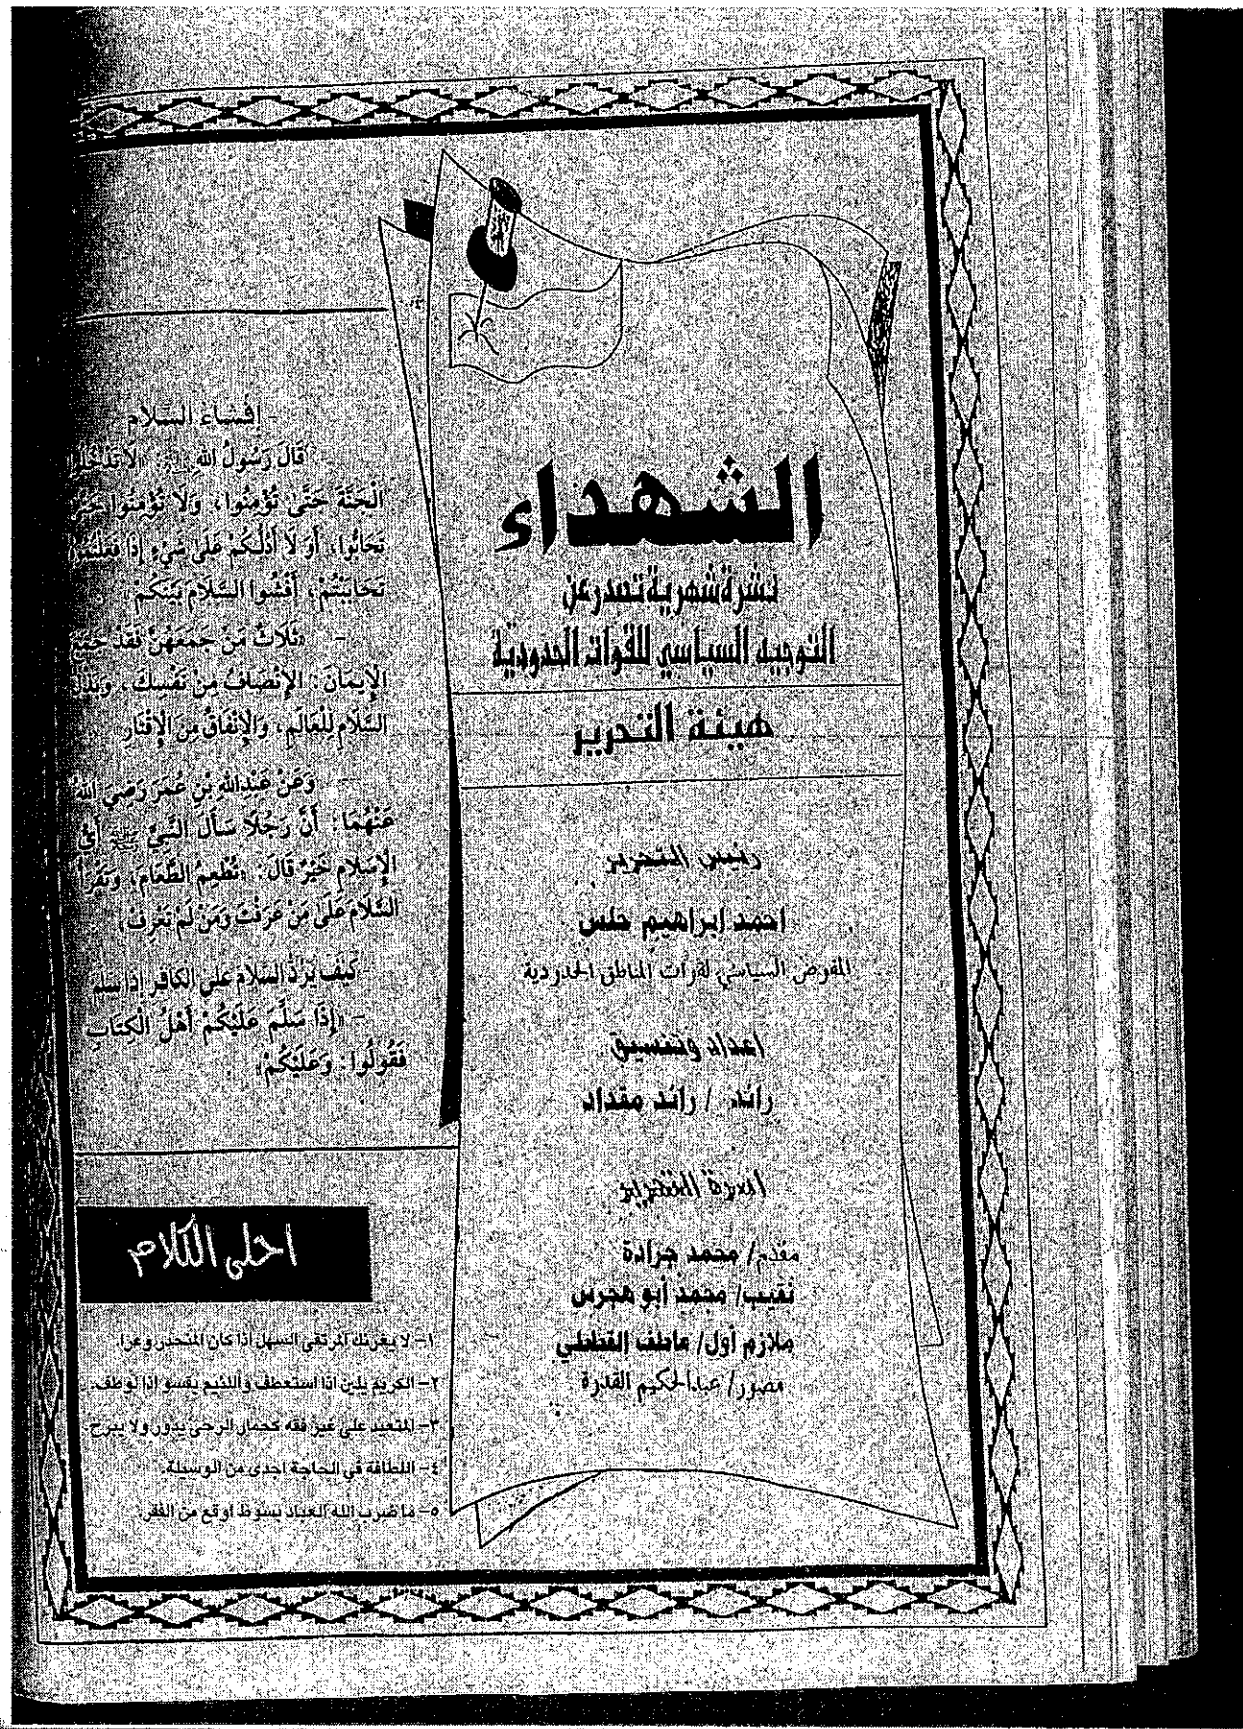 الشهداء
نشرة شهرية تصدر عن
التوجيه السياسي للقوات الحدودية
هيئة التحرير
رئيس التحرير
احمد ابراهيم حلس
المفوض السياسي لقوات المناطق الحدودية
اعداد وتنسيق
رائد / رائد مقداد
اسرة التحرير
مقدم/ محمد جرادة
نقيب/ محمد أبو هجرس
ملازم أول/ عاطف القططي
مصور/ عبدالحكيم القدرة
- إفشاء السلام
قَالَ رَسُولُ اللهِ : «لَا تَدْخُلُوا
الْجَنَّةَ حَتَّى تُؤْمِنُوا، وَلَا تُؤْمِنُوا حَتَّى
تَحَابُّوا، أَوَلَا أَدُلُّكُمْ عَلَى شَيْءٍ إِذَا فَعَلْتُمُوهُ
تَحَابَبْتُمْ، أَفْشُوا السَّلَامَ بَيْنَكُمْ»
- «ثَلَاثٌ مَنْ جَمَعَهُنَّ فَقَدْ جَمَعَ
الْإِيمَانَ: الْإِنْصَافُ مِنْ نَفْسِكَ، وَبَذْلُ
السَّلَامِ لِلْعَالَمِ، وَالْإِنْفَاقُ مِنَ الْإِقْتَارِ
- وَعَنْ عَبْدِاللهِ بْنِ عُمَرَ رَضِيَ اللهُ
عَنْهُمَا: أَنَّ رَجُلًا سَأَلَ النَّبِيَّ ﷺ أَيُّ
الْإِسْلَامِ خَيْرٌ قَالَ: «تُطْعِمُ الطَّعَامَ، وَتَقْرَأُ
السَّلَامَ عَلَى مَنْ عَرَفْتَ وَمَنْ لَمْ تَعْرِفْ
- كَيْفَ يَرُدُّ السَّلَامَ عَلَى الْكَافِرِ إِذَا سَلَّمَ
- «إِذَا سَلَّمَ عَلَيْكُمْ أَهْلُ الْكِتَابِ
فَقُولُوا: وَعَلَيْكُمْ»
احلى الكلام
١- لا يغرنك المرتقى السهل اذا كان المنحدر وعرا.
٢- الكريم يلين اذا استعطف واللئيم يقسو اذا لوطف.
٣- المتعبد على غير فقه كحمار الرحى يدور ولا يبرح.
٤- اللطافة في الحاجة اجدى من الوسيلة.
٥- ما ضرب الله العباد بسوط اوقع من الفقر.